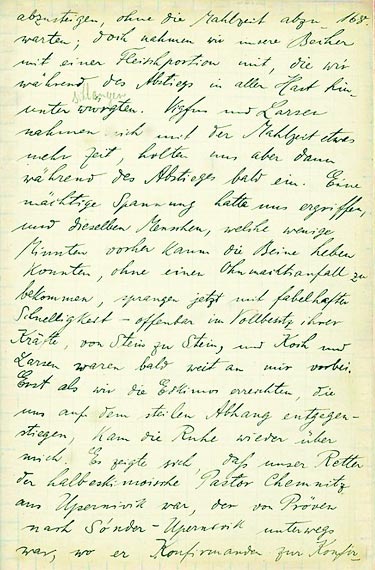 abzusteigen, ohne die Mahlzeit abzu- 168.
warten; doch nahmen wir unsere Becher
mit einer Fleischportion mit, die wir
während des Abstiegs in aller Hast hin-
schlangen
unter würgten. Vigfus und Larsen
nahmen sich mit der Mahlzeit etwas
mehr Zeit, holten uns aber dann
während des Abstieges bald ein. Eine
mächtige Spannung hatte uns ergriffen,
und dieselben Menschen, welche wenige
Minuten vorher kaum die Beine heben
konnten, ohne einen Ohnmachtsanfall zu
bekommen, sprangen jetzt mit fabelhafter
Schnelligkeit – offenbar im Vollbesitz ihrer
Kräfte, von Stein zu Stein, und Koch und
Larsen waren bald weit an mir vorbei.
Erst als wir die Eskimos erreichten, die
uns auf dem steilen Abhang entgegen-
stiegen, kam die Ruhe wieder über
mich. Es zeigte sich, daß unser Retter
der halbeskimoische Pastor Chemnitz
aus Upernivik war, der von Pröven
nach Sönder-Upernivik unterwegs
war, wo er Konfirmanden zur Konfir-